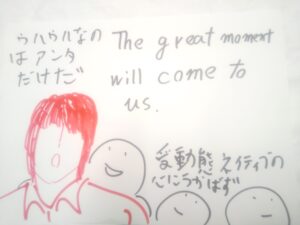 ウハウハなの
はアンタ
だけだ
The great moment
will come to
us.
受動態ネイティブの
心にうかばず